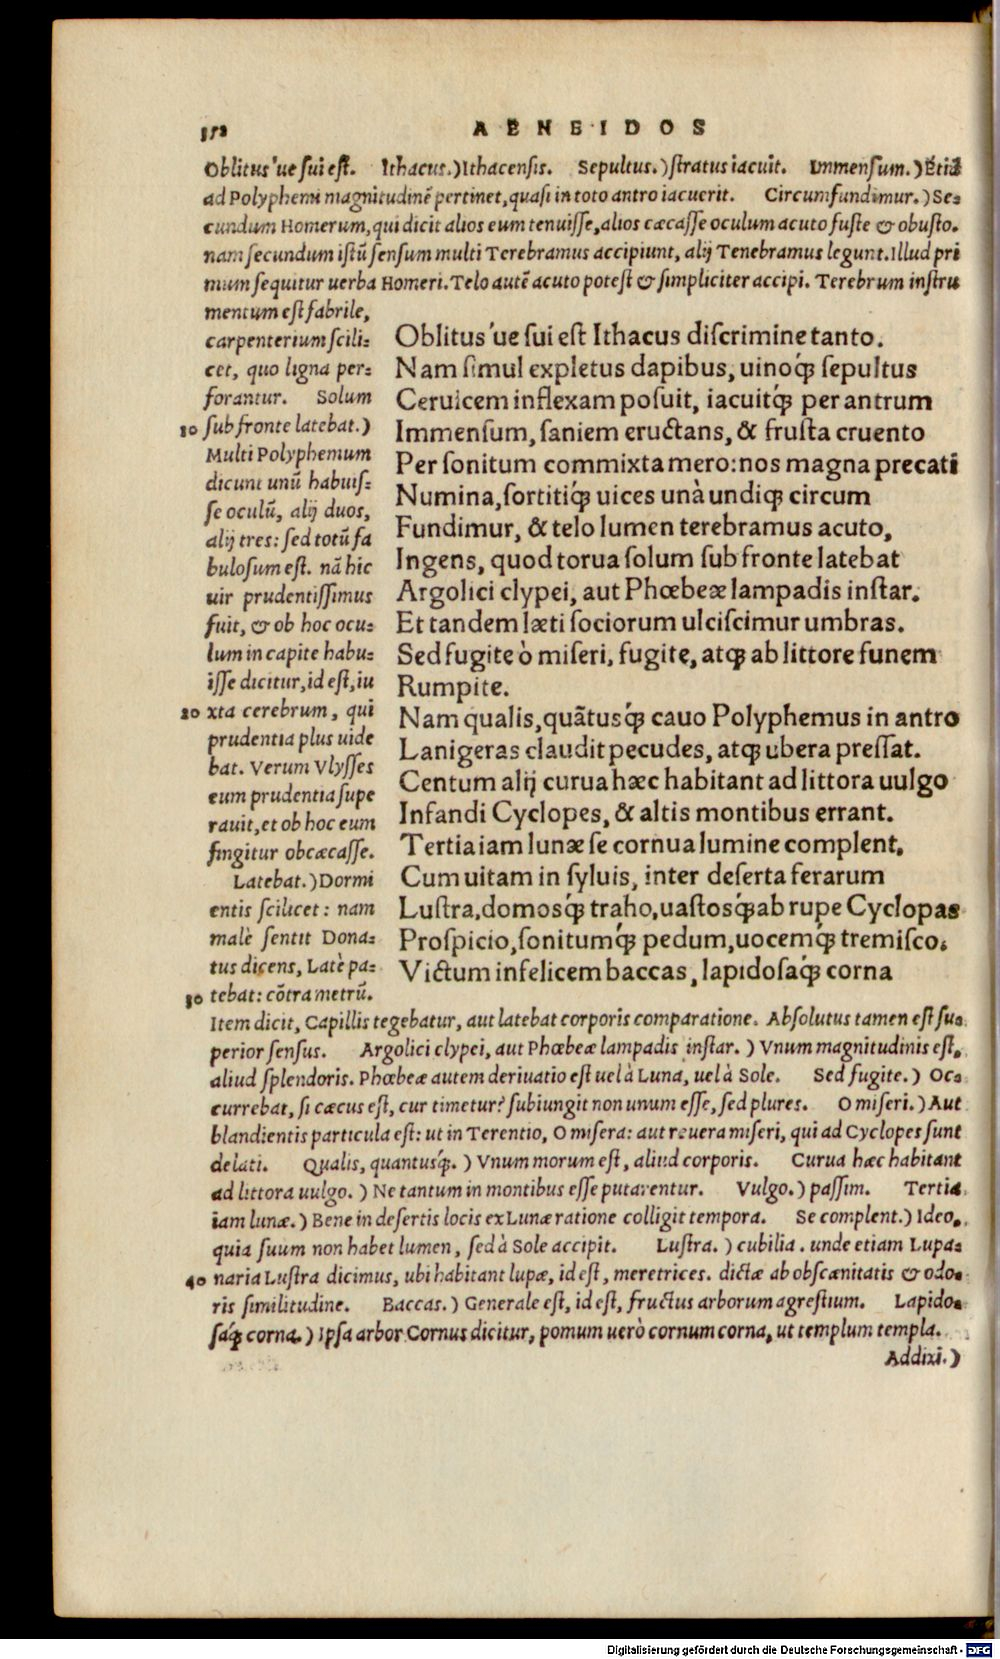 352
AENEIDOS
Oblitus 've sui est. Ithacus.) Ithacensis. Sepultus.) stratus iacuit. Immensum.) Etiã
ad Polyphemi magnitudinẽ pertinet, quasi in toto antro iacuerit. Circumfundimur.) Se-
cundum Homerum, qui dicit alios eum tenuisse, alios cæcasse oculum acuto fuste & obusto.
nam secundum istũ sensum multi Terebramus accipiunt, alij Tenebramus legunt. Illud pri
mum sequitur uerba Homeri. Telo autẽ acuto potest & simpliciter accipi. Terebrum instru
mentum est fabrile,
carpenterium scili-
cet, quo ligna per-
forantur. Solum
10 sub fronte latebat.)
Multi Polyphemum
dicunt unũ habuis-
se oculũ, alij duos,
alij tres: sed totũ fa
bulosum est. nã hic
uir prudentissimus
fuit, & ob hoc ocu-
lum in capite habu-
isse dicitur, id est, iu
20 xta cerebrum, qui
prudentia plus uide
bat. Verum Vlysses
eum prudentia supe
rauit, et ob hoc eum
fingitur obcæcasse.
Latebat.) Dormi
entis scilicet: nam
malè sentit Dona-
tus dicens, Latè pa-
30 tebat: cõtra metrũ.
Oblitus 'ue sui est Ithacus discrimine tanto.
Nam simul expletus dapibus, uinoq́; sepultus
Ceruicem inflexam posuit, iacuitq́; per antrum
Immensum, saniem eructans, & frusta cruento
Per sonitum commixta mero: nos magna precati
Numina, sortitiq́; uices unà undiq; circum
Fundimur, & telo lumen terebramus acuto,
Ingens, quod torua solum sub fronte latebat
Argolici clypei, aut Phœbeæ lampadis instar.
Et tandem læti sociorum ulciscimur umbras.
Sed fugite ò miseri, fugite, atq; ab littore funem
Rumpite.
Nam qualis, quãtusq́; cauo Polyphemus in antro
Lanigeras claudit pecudes, atq; ubera pressat.
Centum alij curua hæc habitant ad littora uulgo
Infandi Cyclopes, & altis montibus errant.
Tertia iam lunæ se cornua lumine complent,
Cum uitam in syluis, inter deserta ferarum
Lustra, domosq́; traho, uastosq́; ab rupe Cyclopas
Prospicio, sonitumq́; pedum, uocemq́; tremisco.
Victum infelicem baccas, lapidosaq́; corna
Item dicit, Capillis tegebatur, aut latebat corporis comparatione. Absolutus tamen est su-
perior sensus. Argolici clypei, aut Phœbeæ lampadis instar.) Vnum magnitudinis est,
aliud splendoris. Phœbeæ autem deriuatio est uel à Luna, uel à Sole. Sed fugite.) Oc-
currebat, si cæcus est, cur timetur? subiungit non unum esse, sed plures. O miseri.) Aut
blandientis particula est: ut in Terentio, O misera: aut reuera miseri, qui ad Cyclopes sunt
delati. Qualis, quantusq́;.) Vnum morum est, aliud corporis. Curua hæc habitant
ad littora uulgo.) Ne tantum in montibus esse putarentur. Vulgo.) passim. Tertia
iam lunæ.) Bene in desertis locis ex Lunæ ratione colligit tempora. Se complent.) Ideo,
quia suum non habet lumen, sed à Sole accipit. Lustra.) cubilia. unde etiam Lupa-
40 naria Lustra dicimus, ubi habitant lupæ, id est, meretrices. dictæ ab obscænitatis & odo-
ris similitudine. Baccas.) Generale est, id est, fructus arborum agrestium. Lapido-
saq́; corna.) Ipsa arbor Cornus dicitur, pomum uerò cornum corna, ut templum templa.
Addixi.)
Digitalisierung gefördert durch die Deutsche Forschungsgemeinschaft - DFG